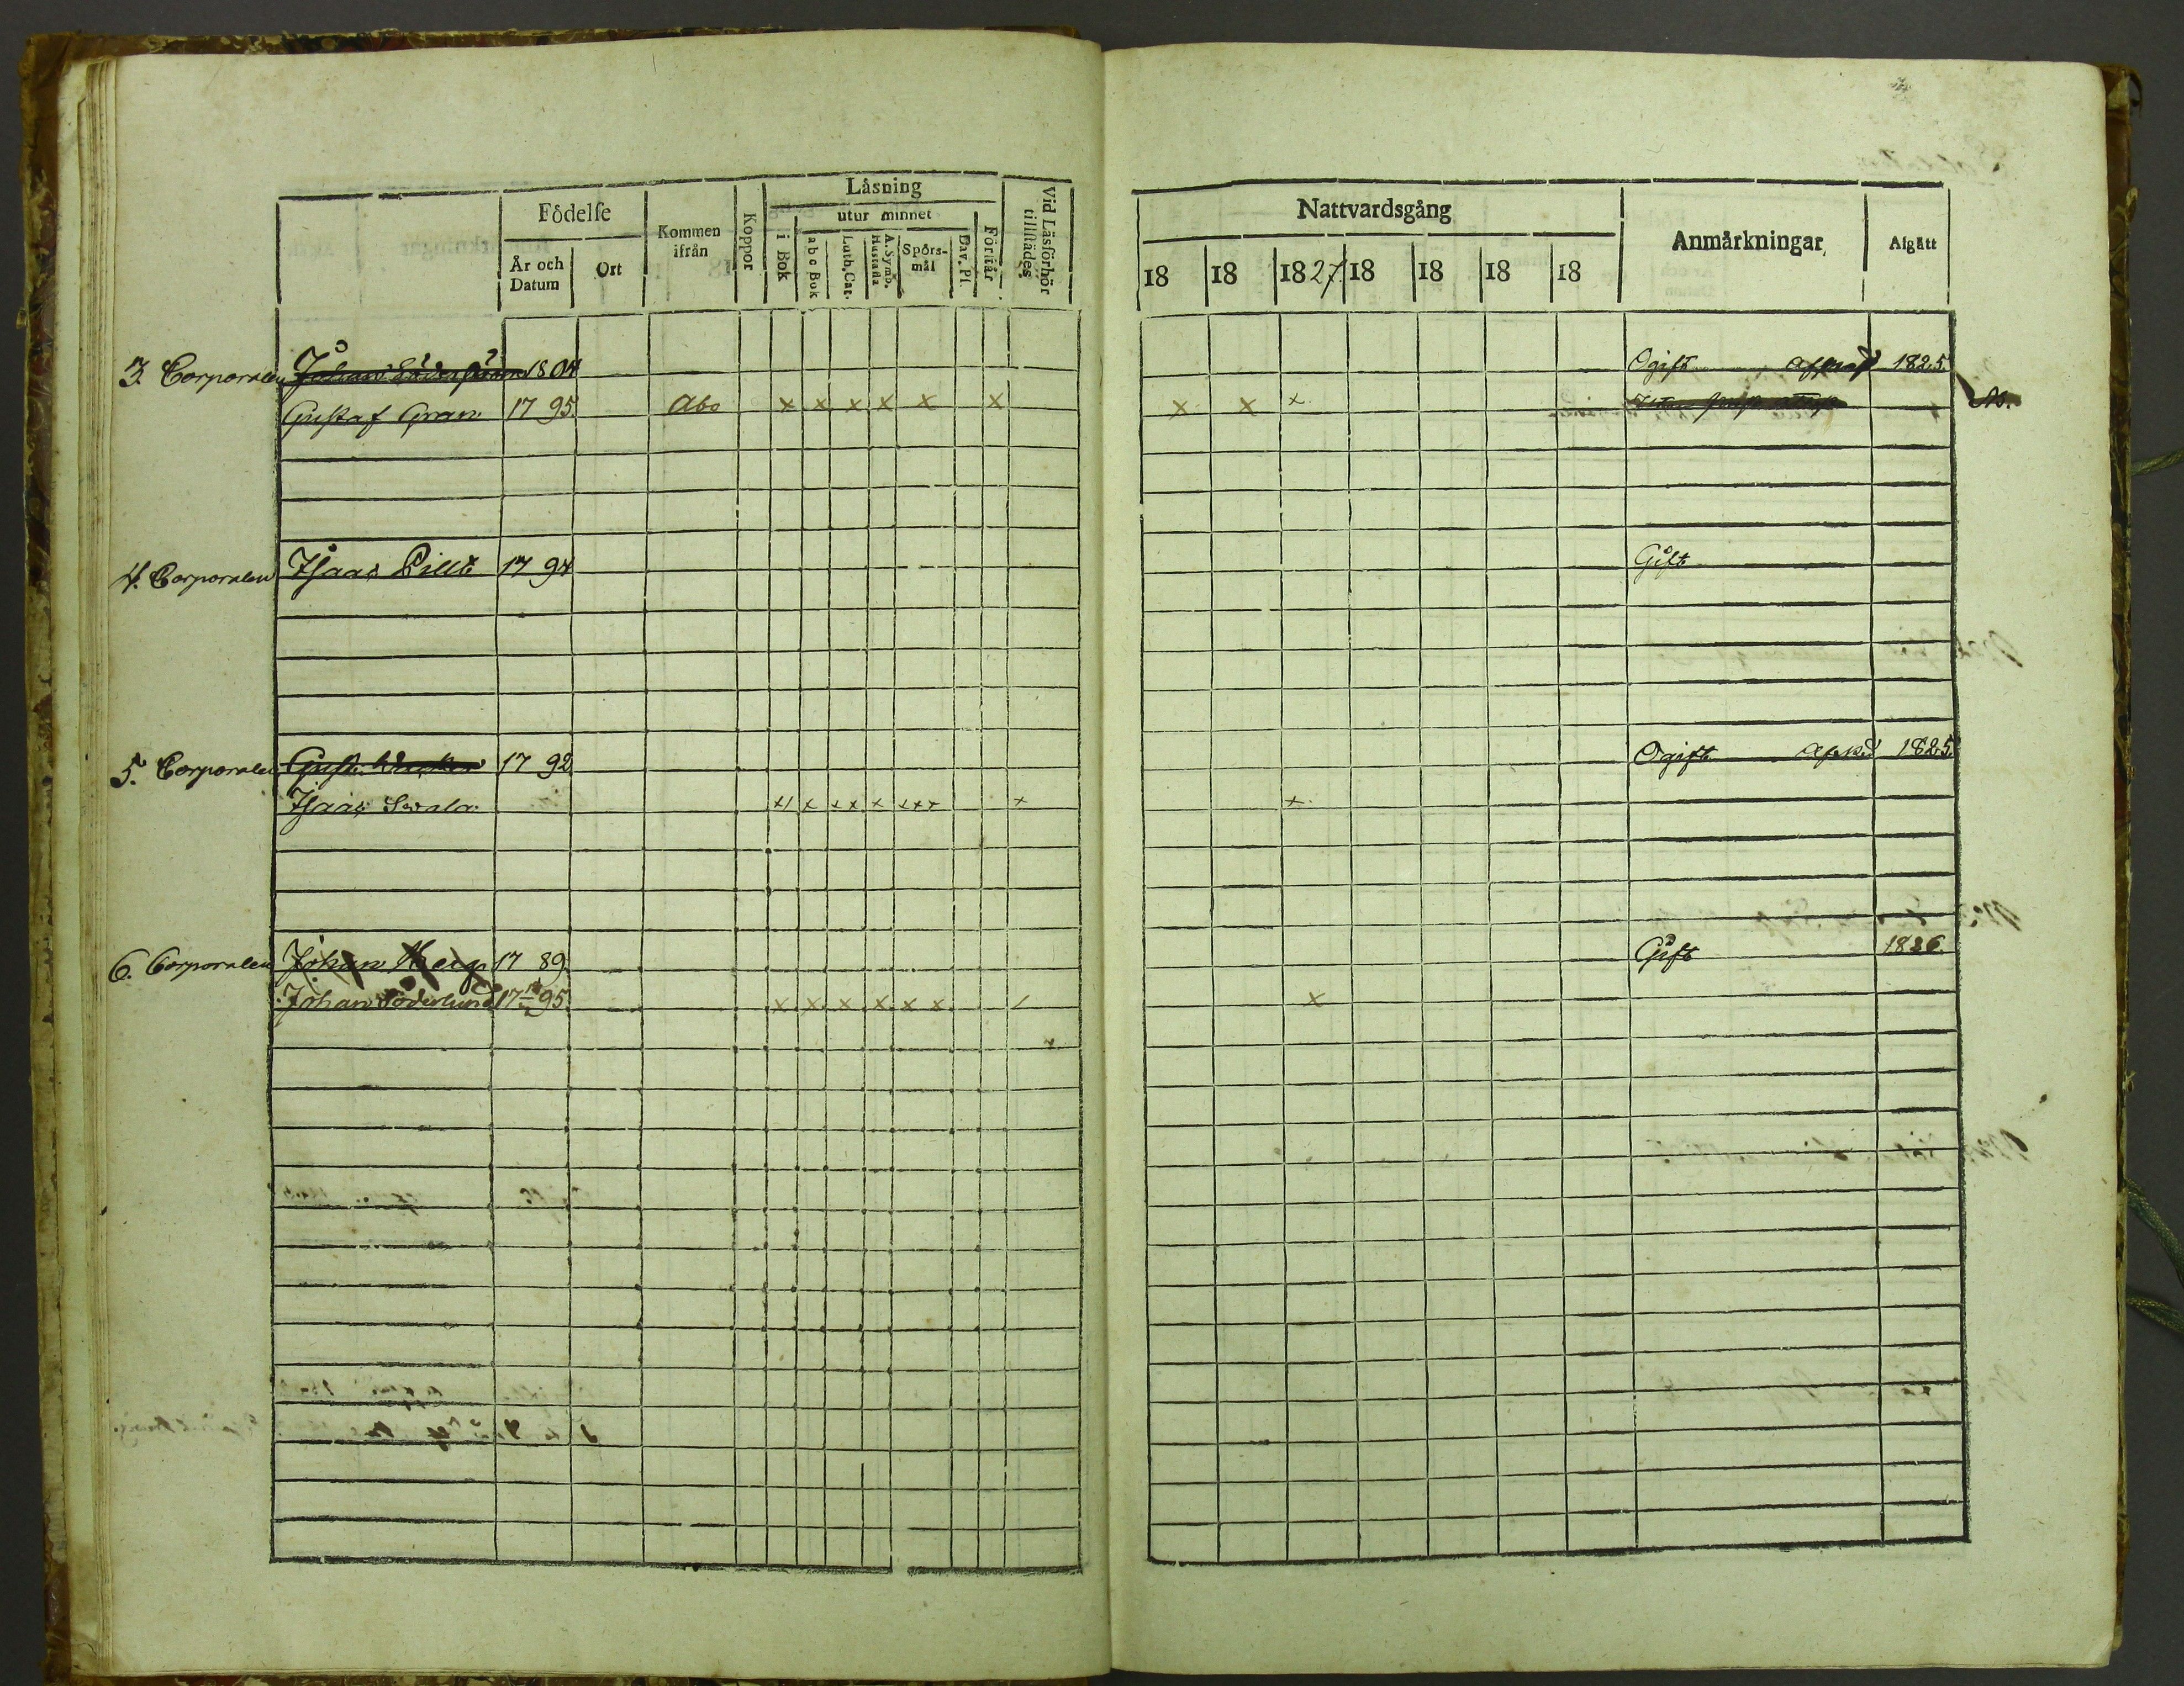 Födelse
Kommen ifrån
Koppor
Läsning
utur minnet
Vid Läsförhör tillstädes
År och Datum
Ort
i Bok
abc Bok
Luth. Cat.
A. Symb. Hustafla
Spörsmål
Dav. Ps.
Förstår
Nattvardsgång
Anmärkningar
Afgått
18 18 1827. 18 18 18 18
3. Corporalen Johan 1804 Ogift 1825.
Gustaf Gran 1795. Abo x x x x x x x x x
4. Corporalen Isaac Lillt 1794 Gift
5. Corporalen Gust. 1792 Ogift Afsked 1825.
Isaac Swala x/ x x x x x x x x x
6. Corporalen Johan Berg 1789. Gift 1826.
Johan Söderlund 1795. x x x x x x / x